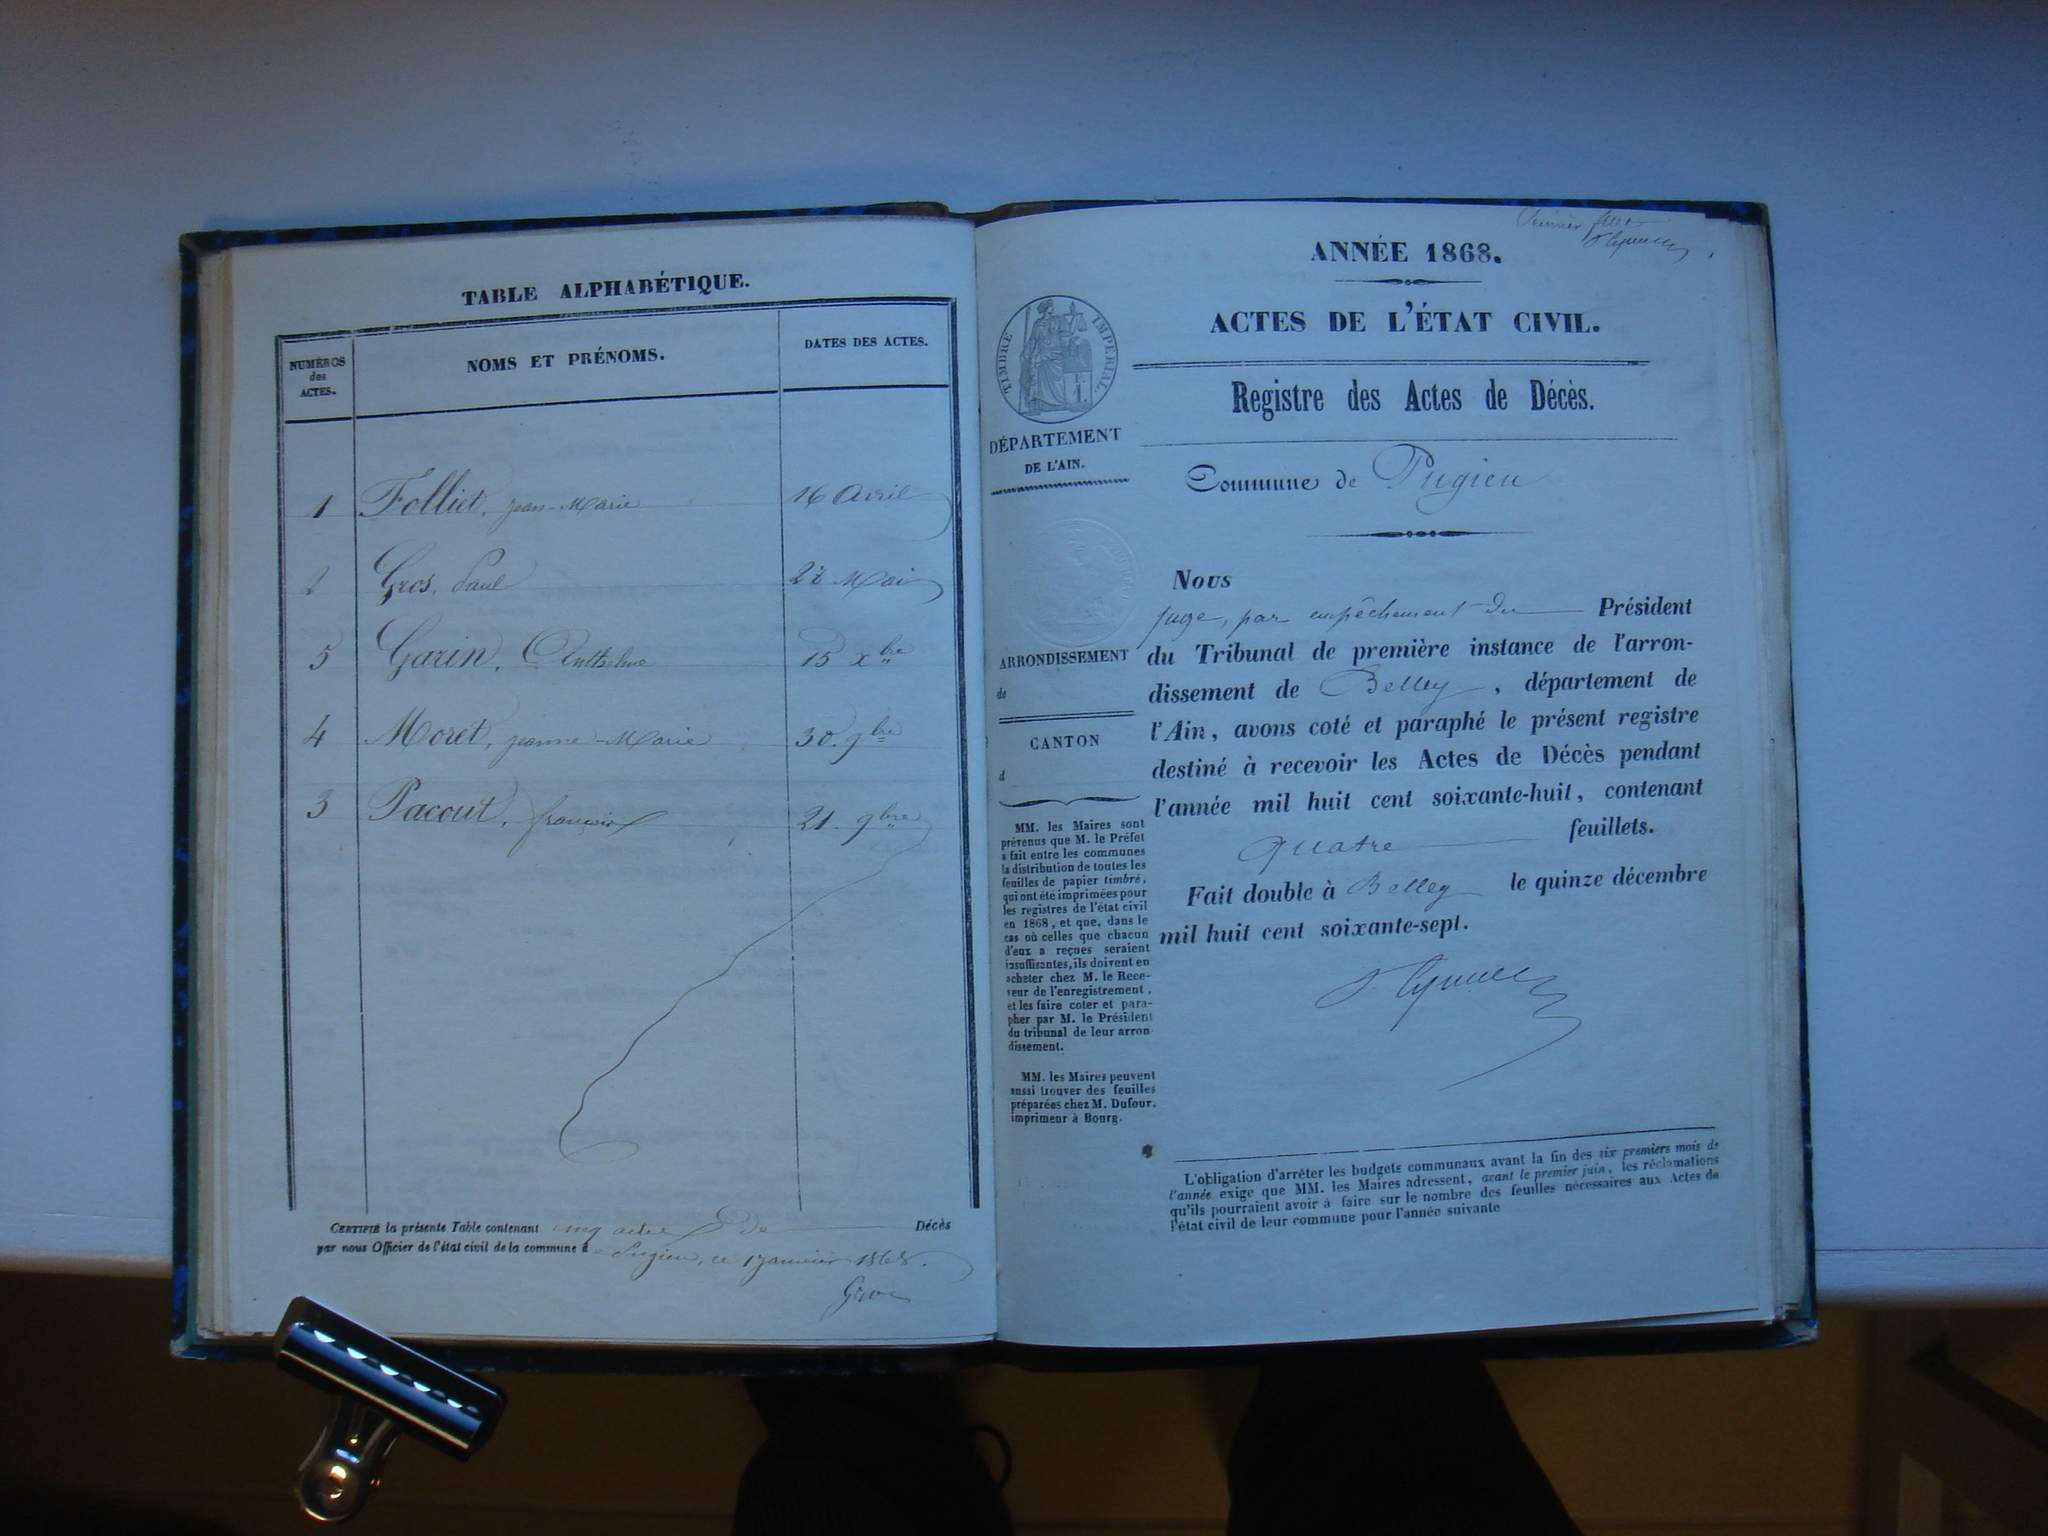 TABLE ALPHABÉTIQUE.
NUMÉROS
des
ACTES.
NOMS ET PRÉNOMS.
DATES DES ACTES.
1 Folliet, jean-Marie 16 Avril
2 Gros, Paul 27 Mai
5 Garin, Anthelme 15 xbre
4 Moret, jeanne-Marie 30. 9bre
3 Pacout, françois 21. 9bre
CERTIFIÉ la présente Table contenant cinq actes de Décès
par nous Officier de l'état civil de la commune d e Pugieu, ce 1 janvier 1868.
Gros
Premier
ANNÉE 1868.
ACTES DE L'ÉTAT CIVIL.
TIMBRE IMPÉRIAL.
Registre des Actes de Décès.
DÉPARTEMENT
DE L'AIN.
Commune de Pugieu
ARRONDISSEMENT
de
CANTON
d
MM. les Maires sont
prévenus que M. le Préfet
a fait entre les communes
la distribution de toutes les
feuilles de papier timbré,
qui ont été imprimées pour
les registres de l'état civil
en 1868, et que, dans le
cas où celles que chacun
d'eux a reçues seraient
insuffisantes, ils doivent en
acheter chez M. le Rece-
veur de l'enregistrement,
et les faire coter et para-
pher par M. le Président
du tribunal de leur arron
dissement.
MM. les Maires peuvent
aussi trouver des feuilles
préparées chez M. Dufour,
imprimeur à Bourg.
Nous
juge, par empêchement du Président
du Tribunal de première instance de l'arron-
dissement de Belley, département de
l'Ain, avons coté et paraphé le présent registre
destiné à recevoir les Actes de Décès pendant
l'année mil huit cent soixante-huit, contenant
quatre feuillets.
Fait double à Belley le quinze décembre
mil huit cent soixante-sept.
L'obligation d'arrêter les budgets communaux avant la fin des six premiers mois de
l'année exige que MM. les Maires adressent, avant le premier juin, les réclamations
qu'ils pourraient avoir à faire sur le nombre des feuilles nécessaires aux Actes de
l'état civil de leur commune pour l'année suivante